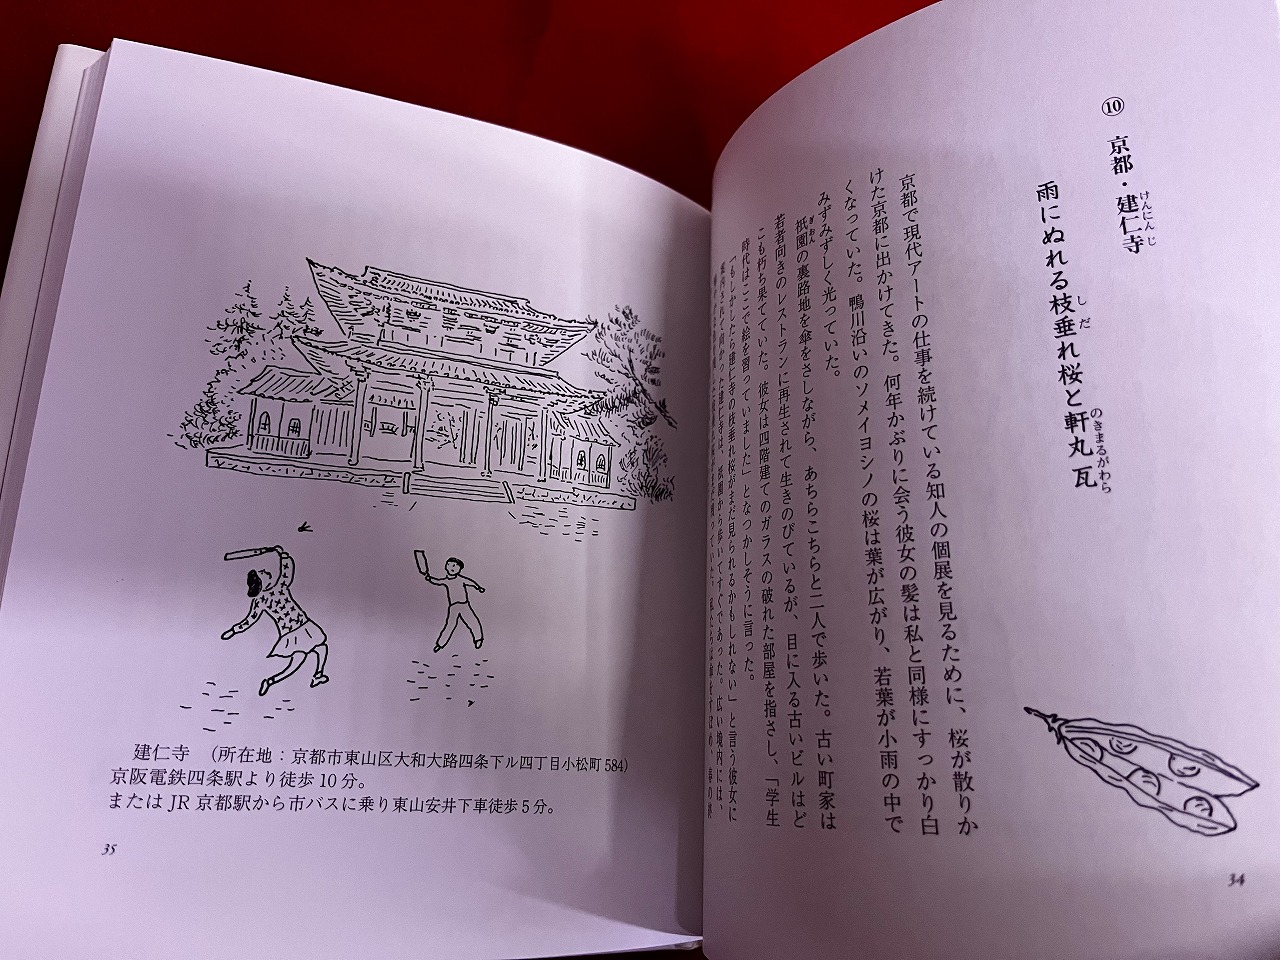 ⑩ 京都・建仁寺
けんにんじ
雨にぬれる枝垂れ桜と軒丸瓦
しだ
のきまるがわら
京都で現代アートの仕事を続けている知人の個展を見るために、桜が散りか
けた京都に出かけてきた。何年かぶりに会う彼女の髪は私と同様にすっかり白
くなっていた。鴨川沿いのソメイヨシノの桜は葉が広がり、若葉が小雨の中で
みずみずしく光っていた。
祇園の裏路地を傘をさしながら、あちらこちらと二人で歩いた。古い町家は
ぎおん
若者向きのレストランに再生されて生きのびているが、目に入る古いビルはど
こも朽ち果てていた。彼女は四階建てのガラスの破れた部屋を指さし、「学生
時代はここで絵を習っていました」となつかしそうに言った。
「もしかしたら建仁寺の枝垂れ桜がまだ見られるかもしれない」と言う彼女に
案内されて向かった建仁寺は、祇園から歩いてすぐであった。広い境内には、
34
建仁寺 (所在地：京都市東山区大和大路四条下ル四丁目小松町584)
京阪電鉄四条駅より徒歩10分。
またはJR京都駅から市バスに乗り東山安井下車徒歩5分。
35